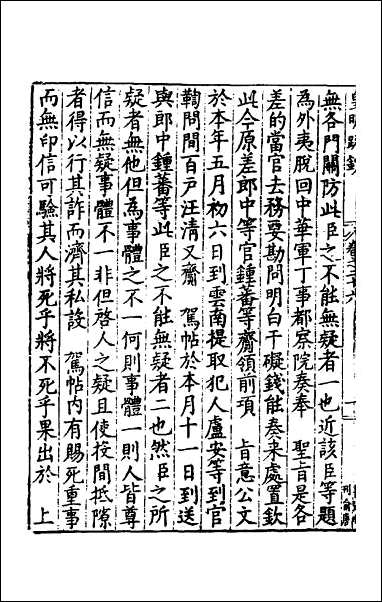 皇明疏鈔 卷之三十六
無各門關防此臣之不能無疑者一也近該臣等題
為外夷脫回中華軍丁事都察院奏奉 聖旨是各
差的當官去務要勘問明白干礙錢能奏來處置欽
此今原差郎中等官鍾蕃等齎領前項 旨意公文
於本年五月初六日到雲南提取犯人盧安等到官
鞫問間百戶汪清又齎 駕帖於本月十一日到送
與郎中鍾蕃等此臣之不能無疑者二也然臣之所
疑者無他但為事體之不一何則事體一則人皆尊
信而無疑事體不一非但啓人之疑且使投間抵隙
者得以行其詐而濟其私設 駕帖內有賜死重事
而無印信可驗其人將死乎將不死乎果出於 上